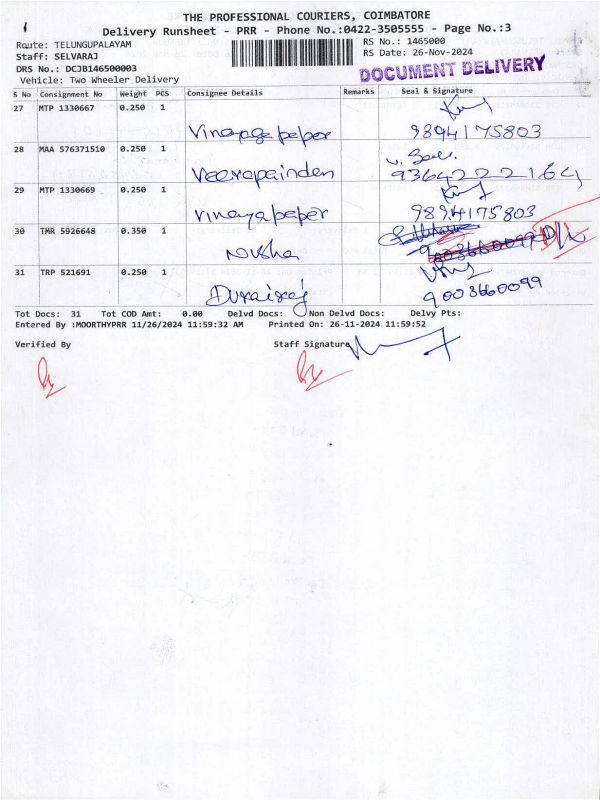 THE PROFESSIONAL COURIERS, COIMBATORE
Delivery Runsheet - PRR - Phone No.:0422-3505555 - Page No.:3
Route: TELUNGUPALAYAM
RS No.: 1465000
Staff: SELVARAJ
RS Date: 26-Nov-2024
DRS No.: DCJB146500003
DOCUMENT DELIVERY
Vehicle: Two Wheeler Delivery
S No Consignment No Weight PCS Consignee Details Remarks Seal & Signature
27 MTP 1330667 0.250 1
Vinayaga peper 9894175803
28 MAA 576371510 0.250 1
Veerapainden 9364222164
29 MTP 1330669 0.250 1
Vinaya peper 9894175803
30 TMR 5926648 0.350 1
Nusha 9003660099 D/L
31 TRP 521691 0.250 1
Duraisaj 9003660099
Tot Docs: 31 Tot COD Amt: 0.00 Delvd Docs: Non Delvd Docs: Delvy Pts:
Entered By :MOORTHYPRR 11/26/2024 11:59:32 AM Printed On: 26-11-2024 11:59:52
Verified By Staff Signature